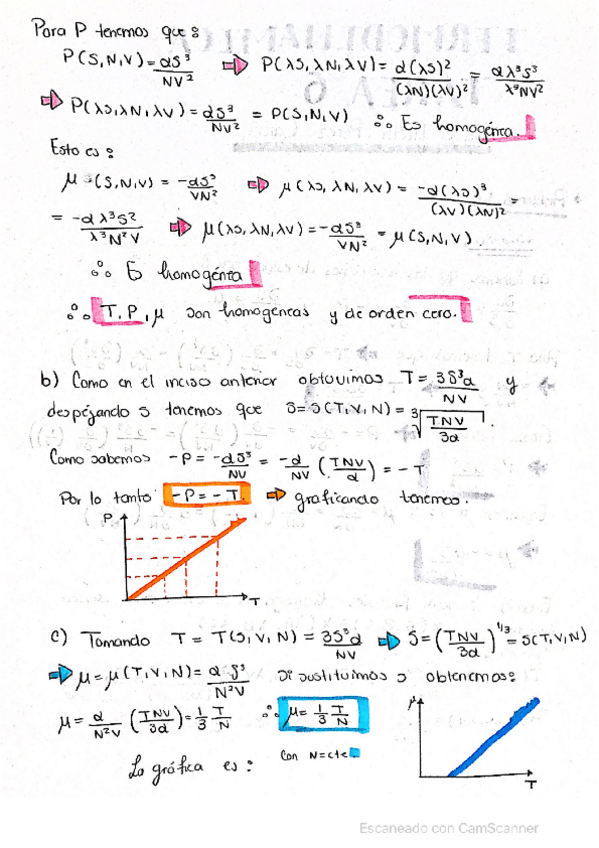 Para P tenemos que:
P(S,N,V) = αS³/NV² ⇒ P(λS,λN,λV) = α(λS)³/(λN)(λV)² = αλ³S³/λ³NV²
⇒ P(λS,λN,λV) = αS³/NV² = P(S,N,V) ∴ Es homogénea.
Esto es:
μ = (S,N,V) = -αS³/VN² ⇒ μ(λS,λN,λV) = -α(λS)³/(λV)(λN)² =
= -αλ³S²/λ³N²V ⇒ μ(λS,λN,λV) = -αS³/VN² = μ(S,N,V)
∴ Es homogénea
∴ T, P, μ son homogéneas y de orden cero.
b) Como en el inciso anterior obtuvimos T = 3S³α/NV y
despejando S tenemos que S = S(T,V,N) = ³√(TNV/3α).
Como sabemos -P = -αS³/NV = -α/NV (TNV/α) = -T
Por lo tanto -P = -T. ⇒ graficando tenemos.
P
T
c) Tomando T = T(S,V,N) = 3S³α/NV ⇒ S = (TNV/3α)^1/3 = S(T,V,N)
⇒ μ = μ(T,V,N) = αS³/N²V Si sustituimos S obtenemos:
μ = α/N²V (TNV/3α) = 1/3 T/N ∴ μ = 1/3 T/N
con N = cte
μ
T
La gráfica es:
Escaneado con CamScanner